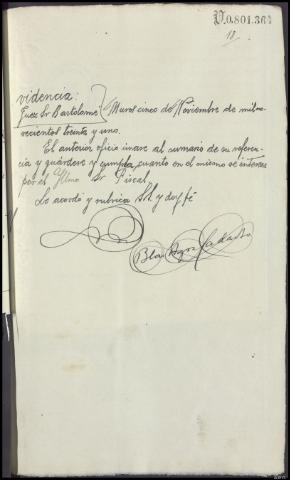 V.0.801.364
18
videncia:
Juez Sr Bartolomé } Muros cinco de Noviembre de mil no-
vecientos treinta y uno.
El anterior oficio únase al sumario de su referen-
cia y guárdese y cumpla cuanto en el mismo se interesa
por el Ilmo Sr Fiscal.
Lo acordó y rubrica SSª y doy fé